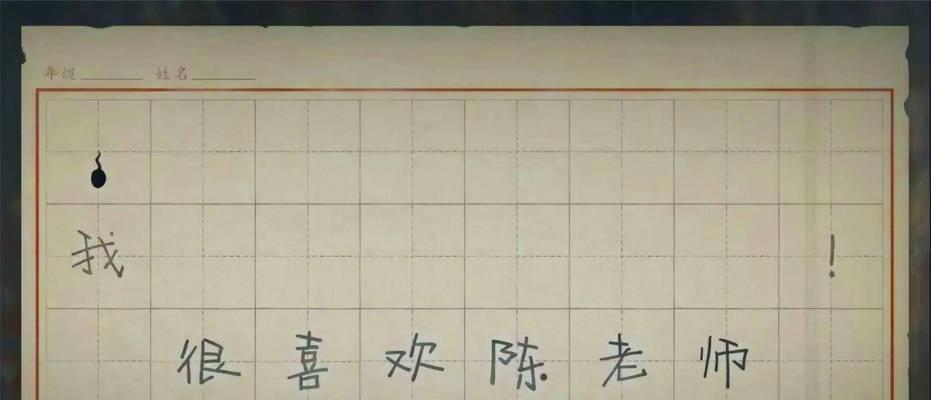 年级 姓名
我 !
很喜欢陈老师